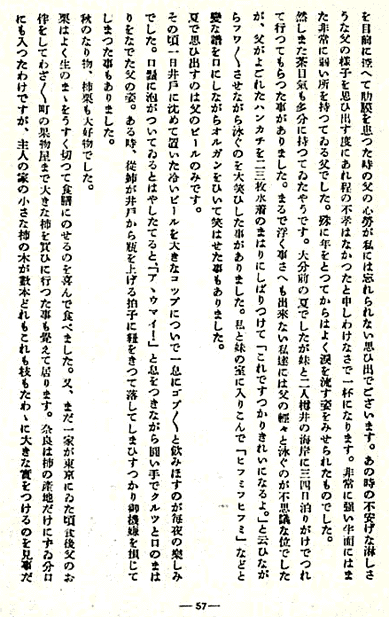 を目前に控へて肋膜を患つた時の父の心勞が私には忘れられない思ひ出でございます。あの時の不安げな淋しさ
うな父の樣子を思ひ出す度にあれ程の不孝はなかつたと申しわけなさで一杯になります。非常に强い半面にはま
た非常に弱い所を持つてゐる父でした。殊に年をとつてからはよく淚を流す姿をみせられたものでした。
然しまた茶目氣も多分に持つてゐたやうです。大分前の夏でしたが妹と二人樽井の海岸に三四日泊りがけでつれ
て行つてもらつた事がありました。まるで浮く事さへも出來ない私達には父の輕々と泳ぐのが不思議な位でした
が、父がよごれたハンカチを二三枚水着のまはりにしばりつけて「これですつかりきれいになるよ。」と云ひなが
らフワ〱させながら泳ぐのを大笑ひした事がありました。私と妹の室に入りこんで「ヒフミフヒフミ」などと
變な譜を口にしながらオルガンをひいて笑はせた事もありました。
夏で思ひ出すのは父のビールのみです。
その頃一日井戶に沈めて置いた冷いビールを大きなコップについで一息にゴブ〱と飮みほすのが每夜の樂しみ
でした。口髭に泡がついてゐるとはやしたてると、「アヽウマイ―」と息をつきながら圓い手でクルツと口のまは
りをなでた父の姿。ある時、從姉が井戶から瓶を上げる拍子に紐をきつて落してしまひすつかり御機嫌を損じて
しまつた事もありました。
秋のなり物、柿栗も大好物でした。
栗はよく生のまゝをうすく切つて食膳にのせるのを喜んで食べました。又、まだ一家が東京にゐた頃食後父のお
伴をしてわざ〱町の果物屋まで大きな柿を買ひに行つた事も覺えて居ります。奈良は柿の產地だけにずゐ分口
にも入つたわけですが、主人の家の小さな柿の木が數本どれもこれも枝もたわゝに大きな實をつけるのを見事だ
— 57 —